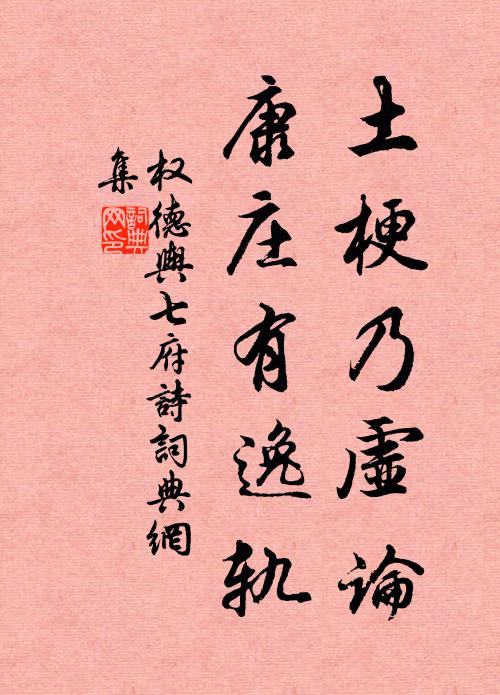 土梗乃虛論
康庄有逸軌
权德輿七府詩詞典網
集
詞典网印